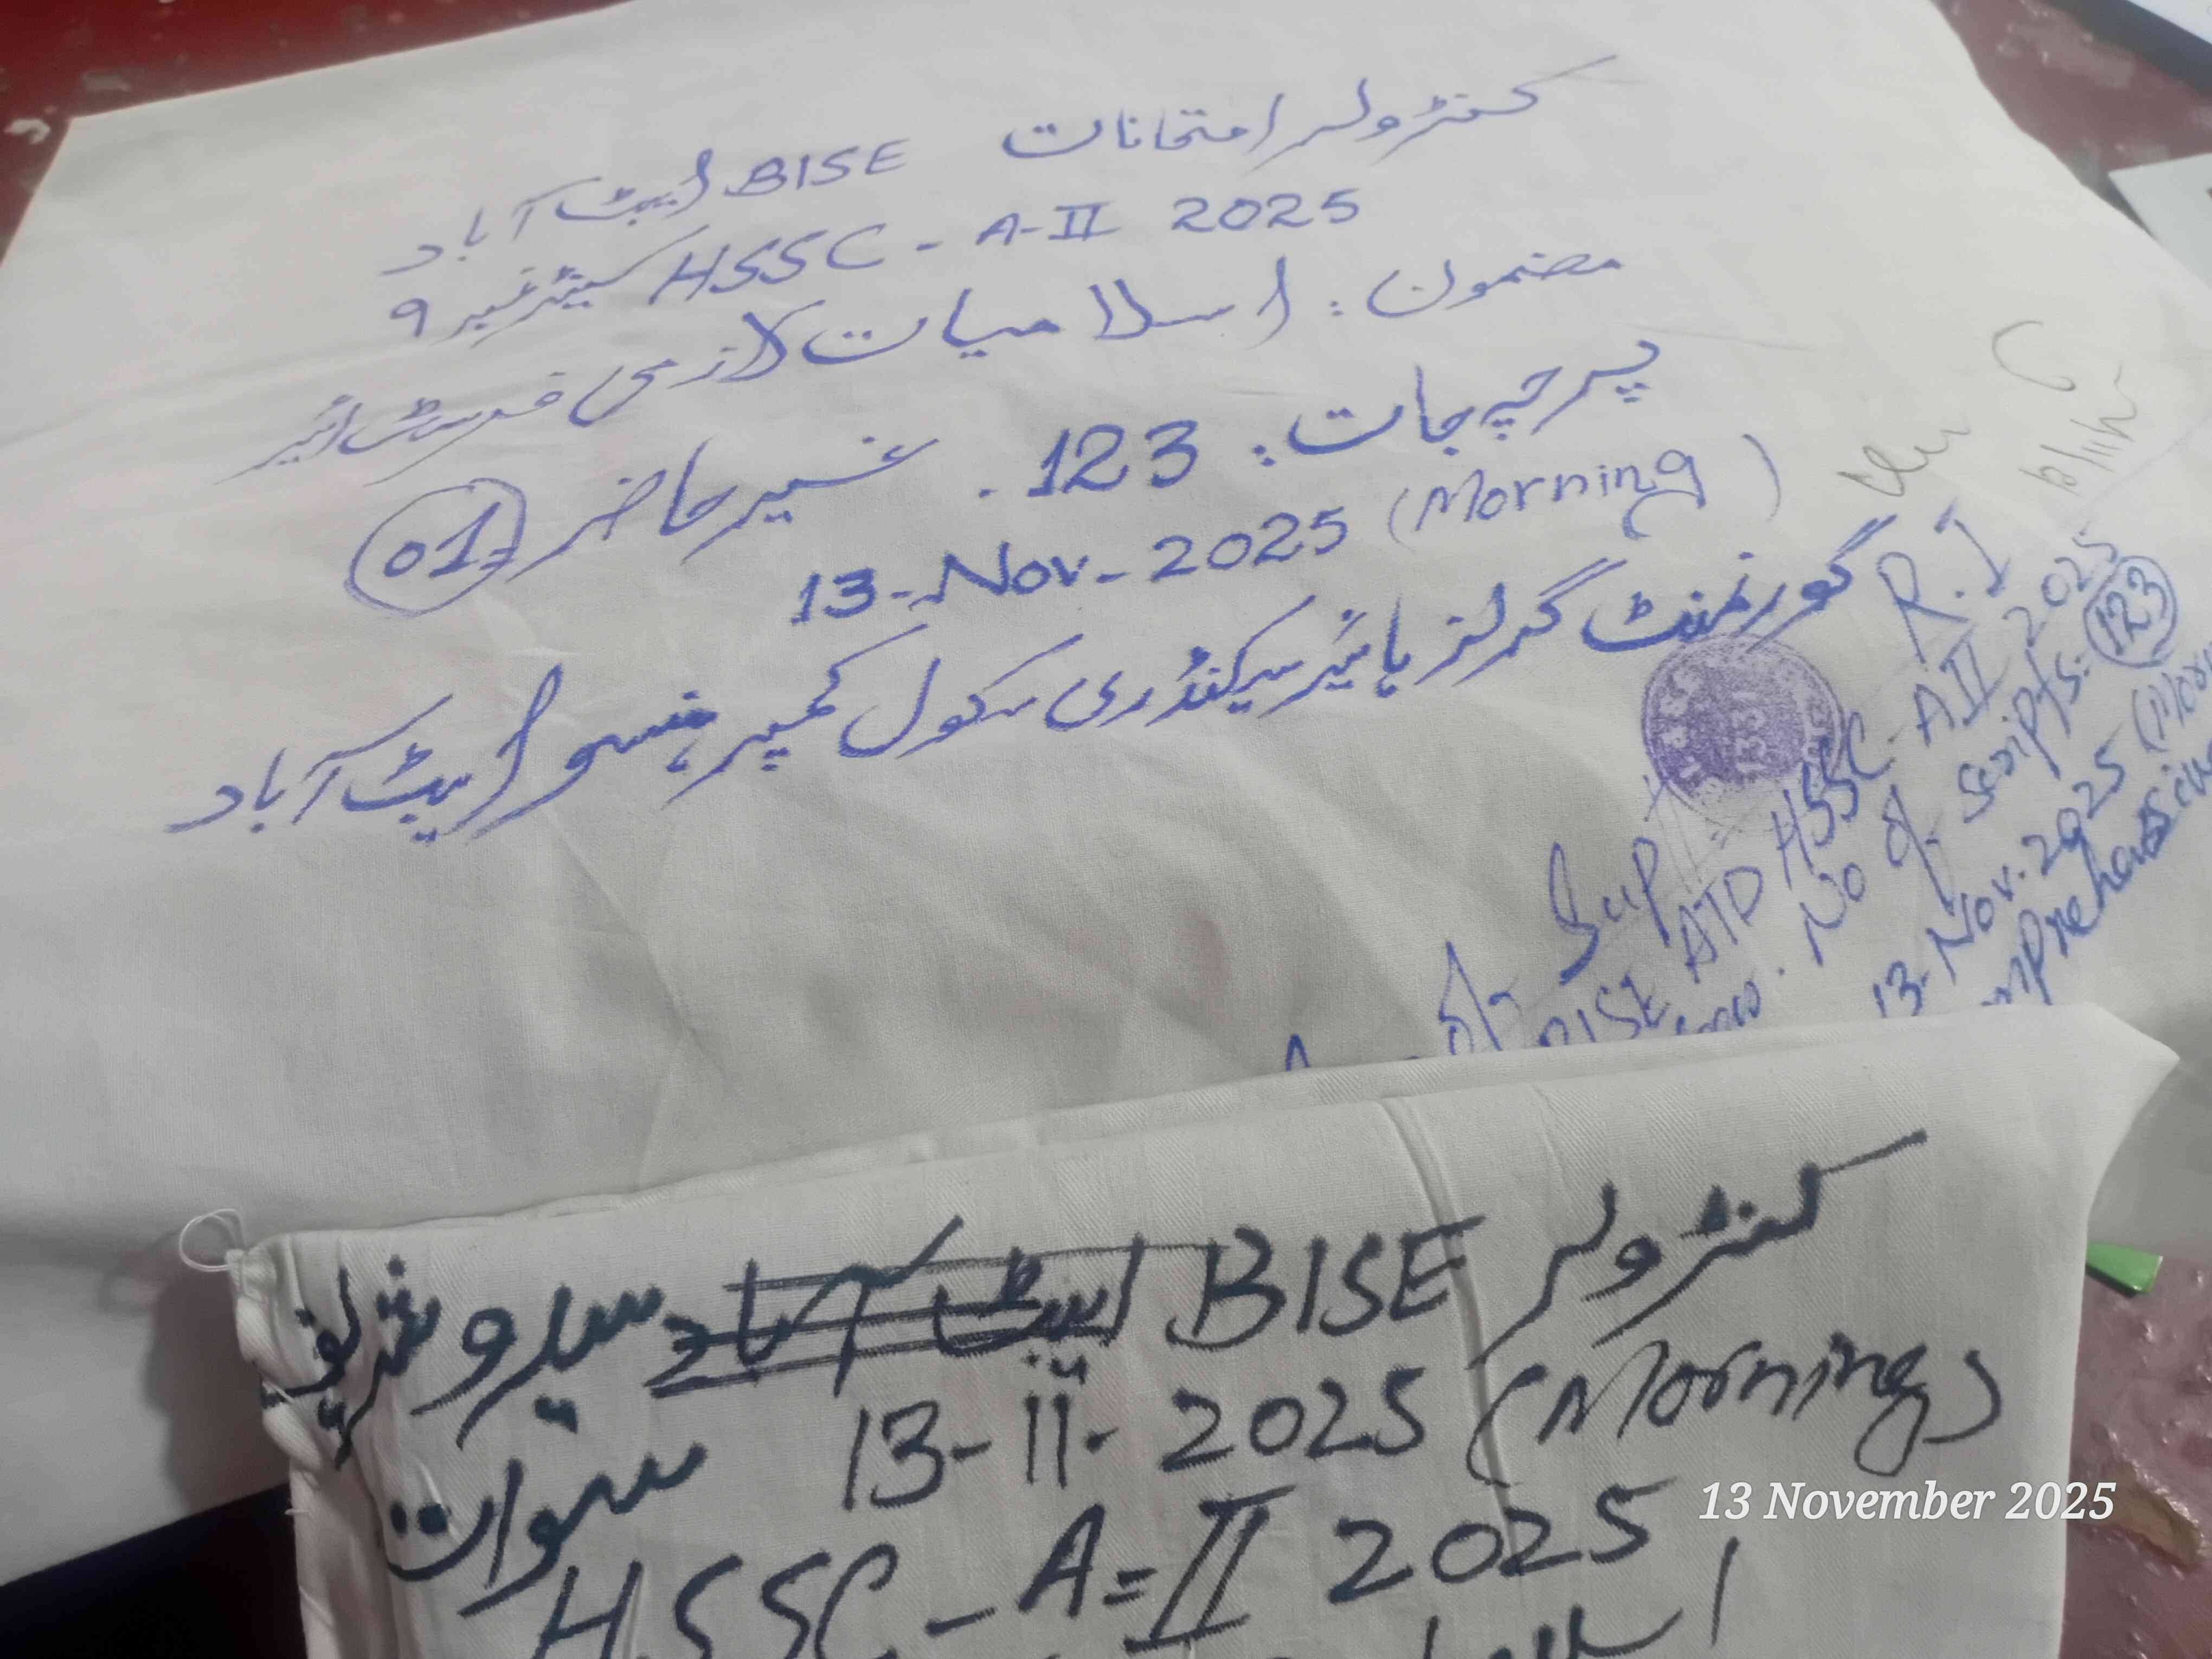 کنٹرولر امتحانات BISE ایبٹ آباد
HSSC - A-II 2025 سینٹر نمبر 9
مضمون: اسلامیات لازمی فرسٹ ائیر
پرچہ جات: 123 . غیر حاضر 01
13-Nov-2025 (Morning)
گورنمنٹ گرلز ہائیر سیکنڈری سکول کمپری ہنسو ایبٹ آباد
R.I
Supt
BISE ATD HSSC-AII 2025
No of Scripts: 123
13-Nov.2025
کنٹرولر BISE ایبٹ آباد سیدو شریف
سوات
13-11-2025 (Morning)
HSSC-A=II 2025
13 November 2025